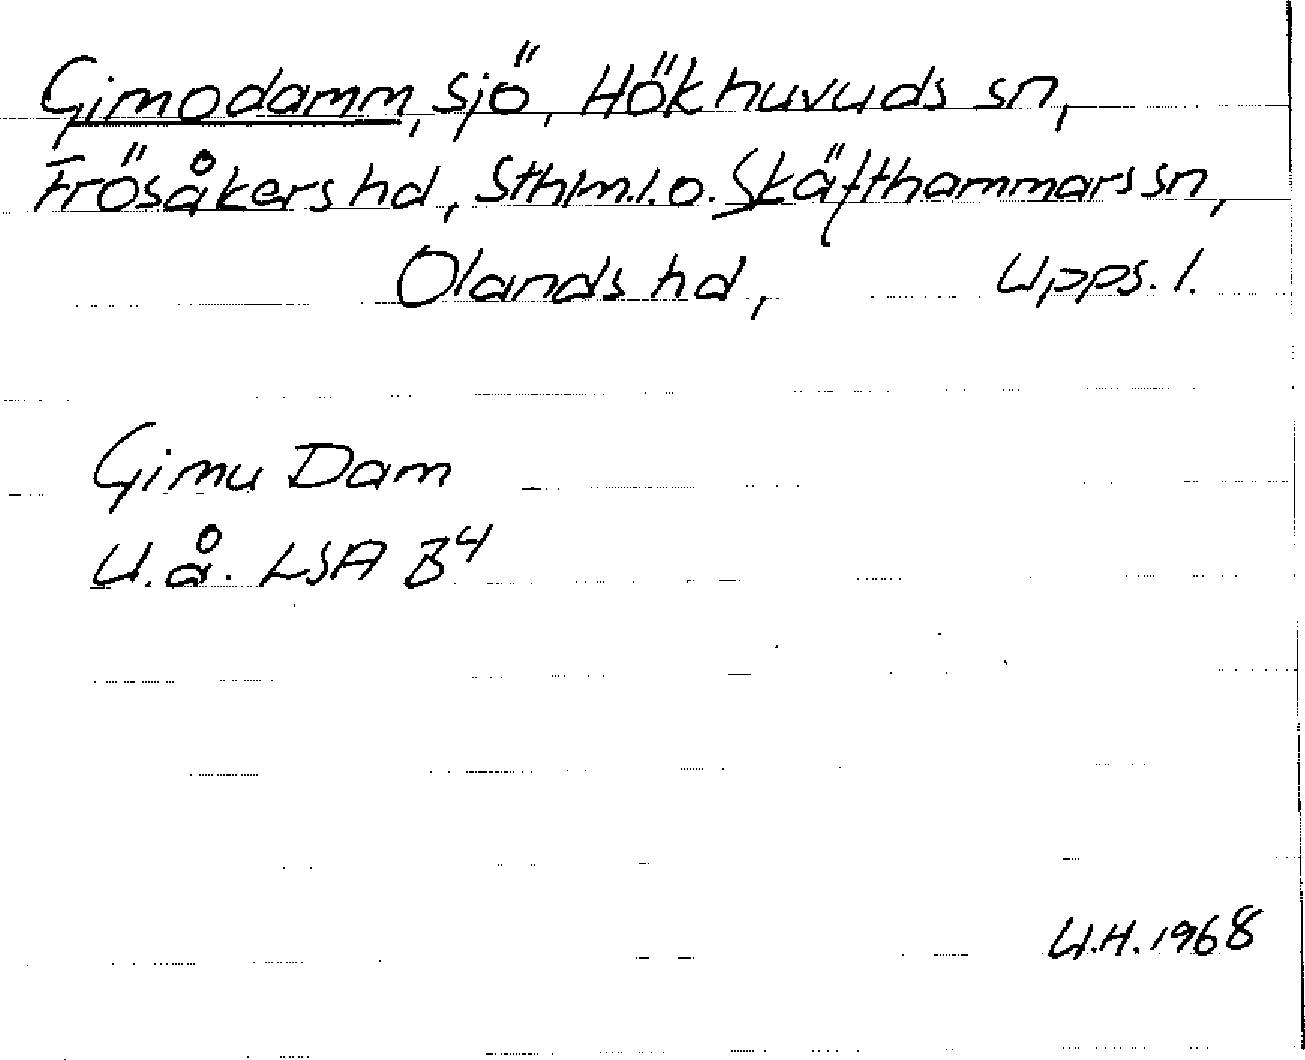 Gimodamm, sjö, Hökhuvuds sn,
Frösåkers hd, Sthlm.l.o. Skäfthammars sn,
Olands hd, Upps. l.
Gimu Dam
U.å. LSA B4
U.H. 1968